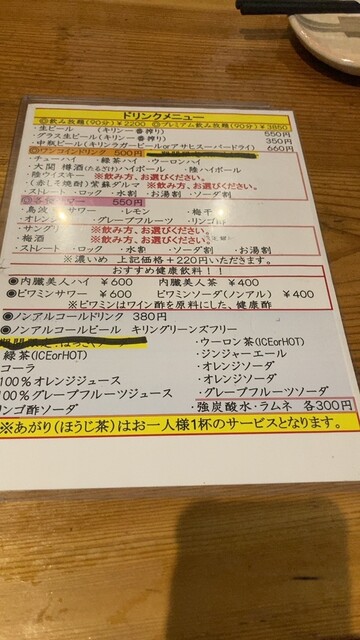 ドリンクメニュー
◎飲み放題(90分)￥2200 ◎プレミアム飲み放題(90分)￥3850
・生ビール (キリン一番搾り) 550円
・グラス生ビール(キリン一番搾り) 350円
・中瓶ビール(キリンラガービールorアサヒスーパードライ) 660円
◎ワンコインドリンク 500円
・チューハイ ・緑茶ハイ ・ウーロンハイ
・大関 樽酒(たるざけ)ハイボール ・陸ハイボール
・陸ウイスキー ※飲み方、お選びください。
・(赤しそ焼酎)紫蘇ダルマ ※飲み方、お選びください。
ストレート ・ロック ・水割 ・お湯割 ・ソーダ割
◎各種サワー 550円
・鳥波 サワー ・レモン ・梅干
・オレンジ ・グレープフルーツ ・リンゴ酢
・サングリア ※飲み方、お選びください。
・梅酒 ※飲み方、お選びください。
・ストレート ・ロック ・水割 ・ソーダ割 ・お湯割
※濃いめ 上記価格+220円いただきます。
おすすめ健康飲料！！
◉内臓美人ハイ ￥600 内臓美人茶 ￥400
◉ビワミンサワー ￥600 ビワミンソーダ(ノンアル) ￥400
※ビワミンはワイン酢を原料にした、健康酢
◉ノンアルコールドリンク 380円
◉ノンアルコールビール キリングリーンズフリー
緑茶(ICEorHOT) ・ウーロン茶(ICEorHOT)
コーラ ・ジンジャーエール
100%オレンジジュース ・オレンジソーダ
100%グレープフルーツジュース ・オレンジソーダ
リンゴ酢ソーダ ・グレープフルーツソーダ
・強炭酸水・ラムネ 各300円
※あがり(ほうじ茶)はお一人様1杯のサービスとなります。